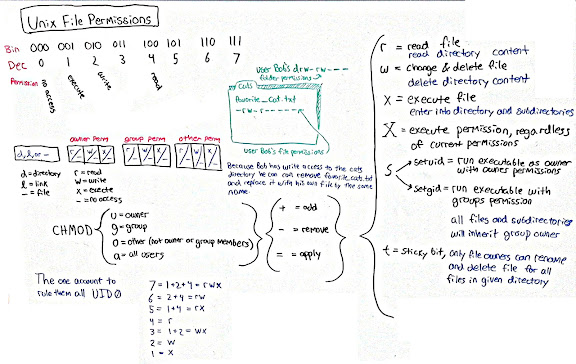 Unix File Permissions
Bin 000 001 010 011 100 101 110 111
Dec 0 1 2 3 4 5 6 7
Permission no access execute write read
owner perm group perm other perm
d, l, or - r/- w/- x/- r/- w/- x/- r/- w/- x/-
d = directory r = read
l = link w = write
- = file x = execute
- = no access
user Bob's drw-rw----
folder permissions
Cats
favorite_cat.txt
-rw-r-----
user Bob's file permissions
Because Bob has write access to the cats
directory he can remove favorite_cat.txt
and replace it with his own file by the same
name.
r = read file
read directory content
w = change & delete file
delete directory content
x = execute file
enter into directory and subdirectories
X = execute permission, regardless
of current permissions
s
setuid = run executable as owner
with owner permissions
setgid = run executable with
groups permission
all files and subdirectories
will inherit group owner
t = sticky bit, only file owners can rename
and delete file for all
files in given directory
CHMOD
u = owner
g = group
o = other (not owner or group members)
a = all users
+ = add
- = remove
= = apply
The one account to
rule them all UID 0
7 = 1+2+4 = rwx
6 = 2+4 = rw
5 = 1+4 = rx
4 = r
3 = 1+2 = wx
2 = w
1 = x